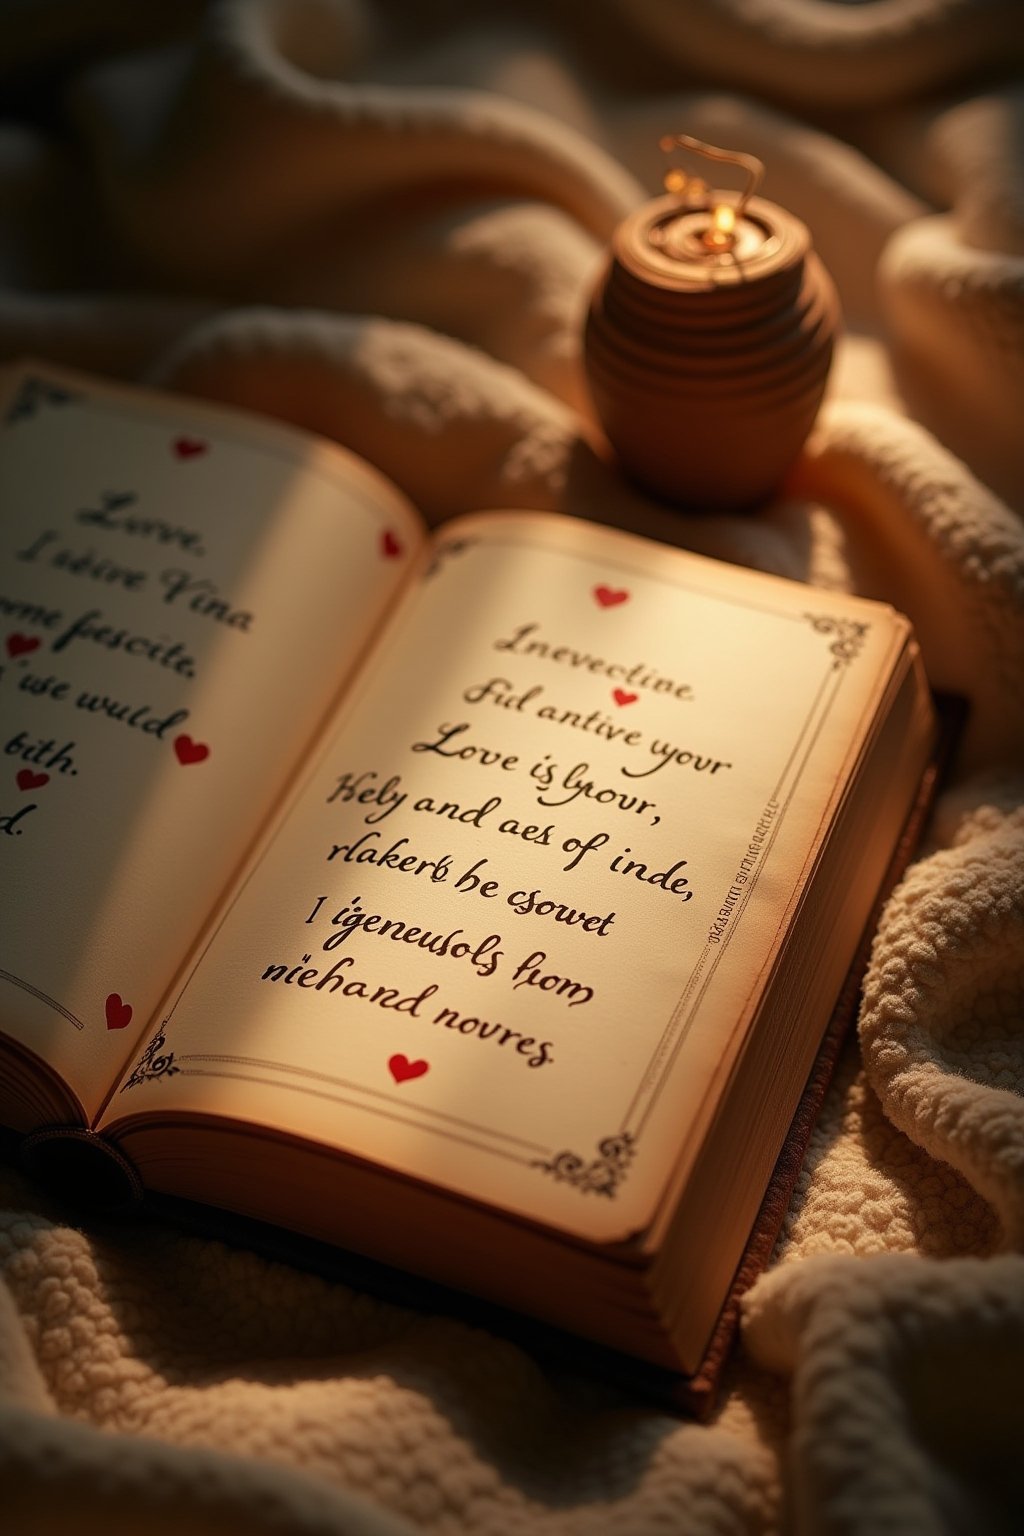 Love.
I seire Vina
ome fuescite.
use wuld
bith.
d.
Inevective
Fid antive your
Love is lyour,
Hely and aes of inde,
rlakerb be csowet
I igeneusols from
niehand novres.